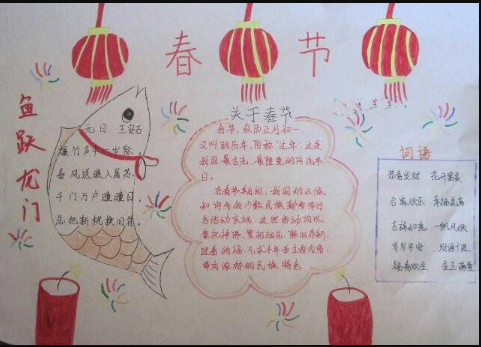 春节
鱼跃龙门
元日 王安石
爆竹声中一岁除，
春风送暖入屠苏。
千门万户曈曈日，
总把新桃换旧符。
关于春节
春节，农历正月初一，
又叫阴历年，俗称"过年"，这是
我国最古老、最隆重的传统节
日。
在春节期间，我国的汉族
和许多少数民族都要举行
各种活动
祭祀祖先、除旧布新、
迎禧
带有浓郁的民族特色
词语
恭喜发财 花开富贵
合家欢乐 幸福美满
吉祥如意 一帆风顺
岁岁平安 财源广进